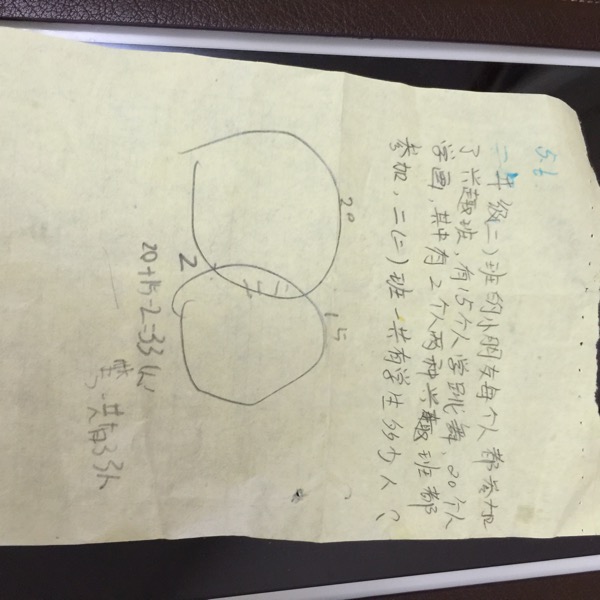 5.6.
二年级(二)班的小朋友每个人都参加
了兴趣班,有15个人学跳舞,20个人
学画,其中有2个人两种兴趣班都
参加,二(二)班一共有学生多少人?
20
15
2
20+15-2=33(人)
答:一共有33人